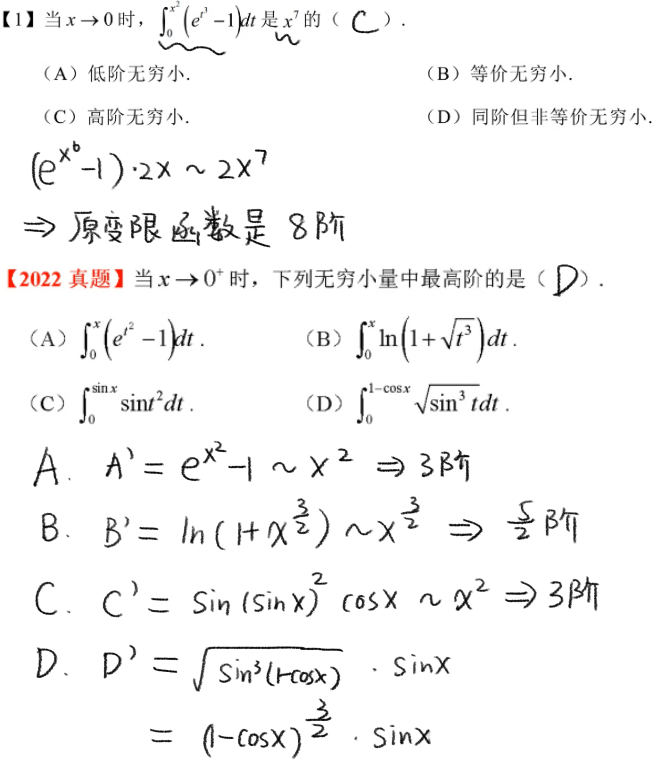 【1】当 x→0 时，∫₀^{x²}(e^{t³}−1)dt 是 x⁷ 的（ C ）.
（A）低阶无穷小. （B）等价无穷小.
（C）高阶无穷小. （D）同阶但非等价无穷小.
(e^{x⁶}-1)·2x ~ 2x⁷
⇒ 原变限函数是 8阶
【2022 真题】当 x→0⁺ 时，下列无穷小量中最高阶的是（ D ）.
（A）∫₀^{x}(e^{t²}−1)dt . （B）∫₀^{x} ln(1+√(t³))dt .
（C）∫₀^{sin x} sint²dt . （D）∫₀^{1−cosx} √(sin³ t)dt .
A. A' = e^{x²}-1 ~ x² ⇒ 3阶
B. B' = ln(1+x^{3/2}) ~ x^{3/2} ⇒ 5/2 阶
C. C' = sin(sinx)² cosx ~ x² ⇒ 3阶
D. D' = √(sin³(1-cosx)) · sinx
= (1-cosx)^{3/2} · sinx